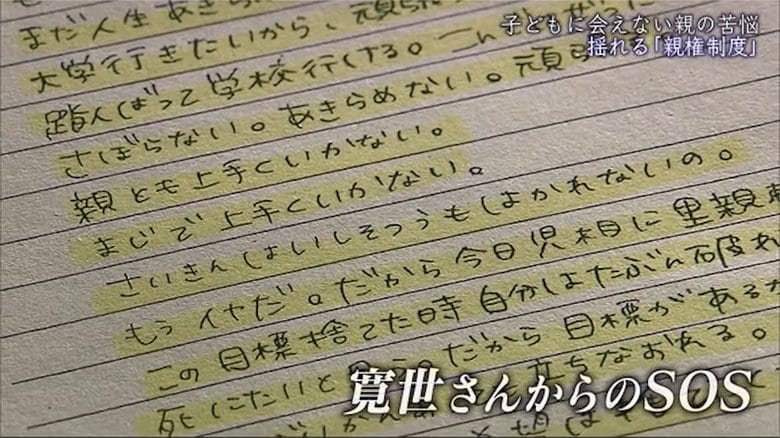 子どもに会えない親の苦悩
揺れる「親権制度」
まだ人生あきら
大学行きたいから、頑
踏んばって学校行ける。
さぼらない。あきらめない。頑
親とも上手くいかない。
まじで上手くいかない。
さいきんはいしそつうもはかれないの。
もうイヤだ。だから今日児相に里親
この目標捨てた時自分はたぶん破
死にたいと だから目標がある
立ちなおれる。
寛世さんからのSOS